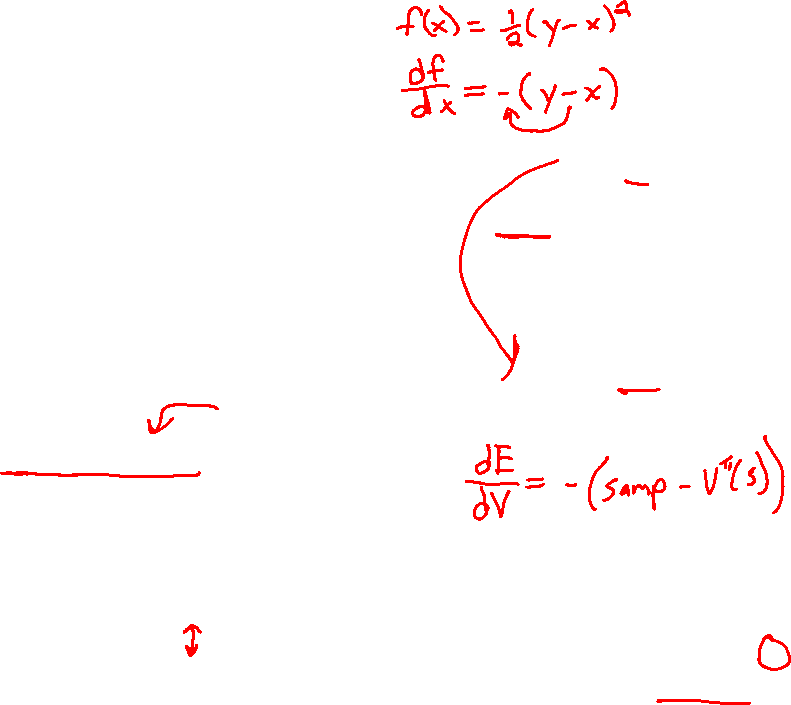 f(x) = 1/2 (y - x)²
df/dx = -(y - x)
dE/dV = -(samp - V^π(s))